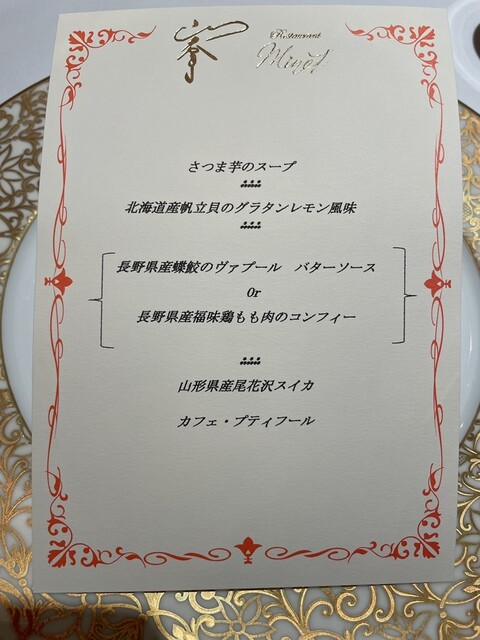 Restaurant
さつま芋のスープ
北海道産帆立貝のグラタンレモン風味
長野県産蝶鮫のヴァプール　バターソース
Or
長野県産福味鶏もも肉のコンフィー
山形県産尾花沢スイカ
カフェ・プティフール